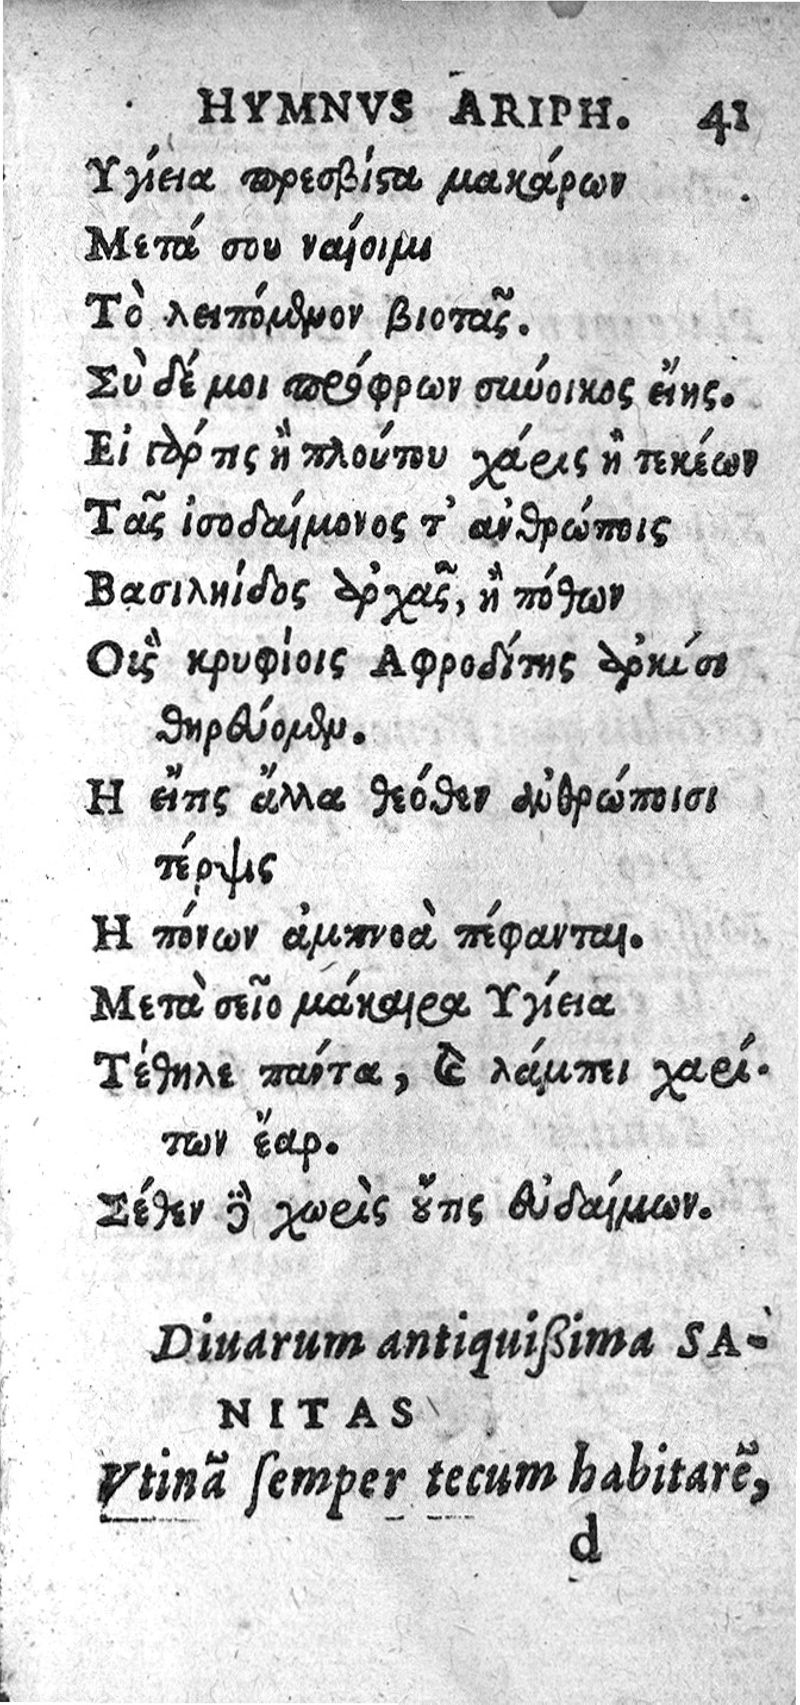 HYMNVS ARIPH. 41
Υγίεια πρεσβίςα μακάρων
Μετά σου ναίοιμι
Τὸ λειπόμενον βιοτᾶς.
Σὺ δέ μοι πρόφρων σύνοικος εἴης.
Εἰ γάρ τις ἢ πλούτου χάρις ἢ τεκέων
Τᾶς ἰσοδαίμονος τ' ἀνθρώποις
Βασιληίδος ἀρχᾶς, ἢ πόθων
Οἷς κρυφίοις Αφροδίτης ἄρκυσι
θηρεύομεν.
Η εἴτις ἄλλα θεόθεν ἀνθρώποισι
τέρψις
Η πόνων ἀμπνοὰ πέφανται.
Μετὰ σεῖο μάκαιρα Υγίεια
Τέθηλε πάντα, ϗ λάμπει χαρί-
των ἔαρ.
Σέθεν δὲ χωρὶς οὔτις εὐδαίμων.
Diuarum antiquißima SA-
NITAS
Vtinã semper tecum habitarẽ,
d